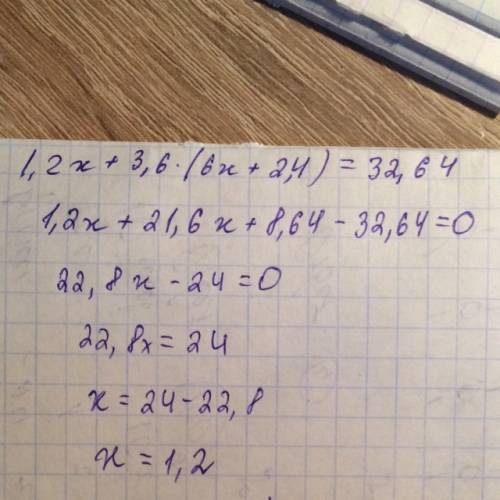 1,2x + 3,6·(6x + 2,4) = 32,64
1,2x + 21,6x + 8,64 - 32,64 = 0
22,8x - 24 = 0
22,8x = 24
x = 24 - 22,8
x = 1,2